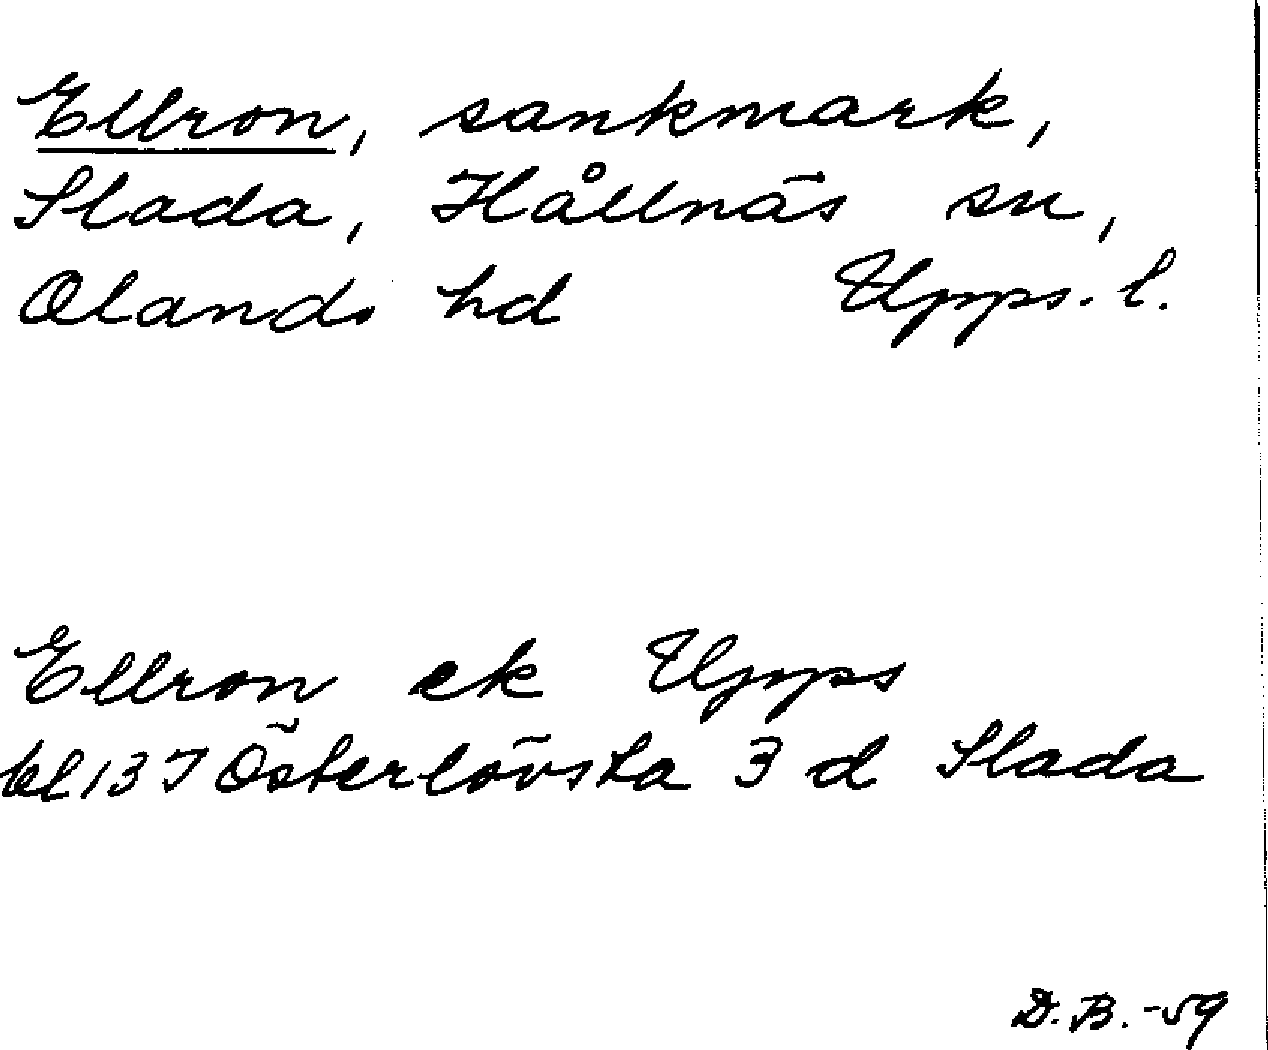 Ellron, sankmark,
Slada, Hållnäs sn,
Olands hd Upps. l.
Ellron ek Upps
bl 13 I Österlövsta 3 d Slada
D.B. -59